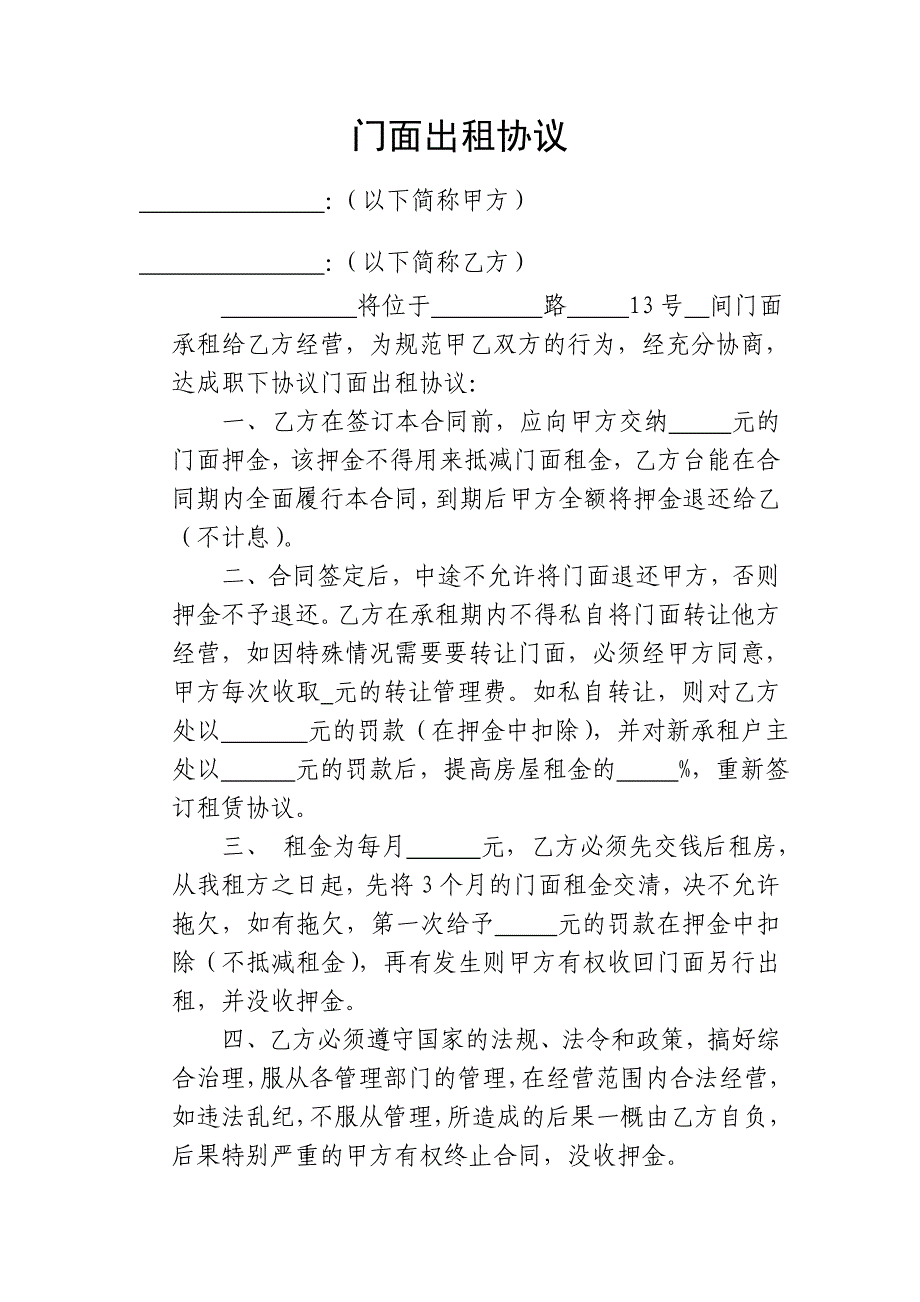 门面出租协议
_______________:(以下简称甲方)
_______________:(以下简称乙方)
___________将位于_________路_____13号__间门面
承租给乙方经营,为规范甲乙双方的行为,经充分协商,
达成职下协议门面出租协议:
一、乙方在签订本合同前,应向甲方交纳_____元的
门面押金,该押金不得用来抵减门面租金,乙方台能在合
同期内全面履行本合同,到期后甲方全额将押金退还给乙
(不计息)。
二、合同签定后,中途不允许将门面退还甲方,否则
押金不予退还。乙方在承租期内不得私自将门面转让他方
经营,如因特殊情况需要要转让门面,必须经甲方同意,
甲方每次收取_元的转让管理费。如私自转让,则对乙方
处以_______元的罚款(在押金中扣除),并对新承租户主
处以______元的罚款后,提高房屋租金的_____%,重新签
订租赁协议。
三、 租金为每月______元,乙方必须先交钱后租房,
从我租方之日起,先将3个月的门面租金交清,决不允许
拖欠,如有拖欠,第一次给予_____元的罚款在押金中扣
除(不抵减租金),再有发生则甲方有权收回门面另行出
租,并没收押金。
四、乙方必须遵守国家的法规、法令和政策,搞好综
合治理,服从各管理部门的管理,在经营范围内合法经营,
如违法乱纪,不服从管理,所造成的后果一概由乙方自负,
后果特别严重的甲方有权终止合同,没收押金。